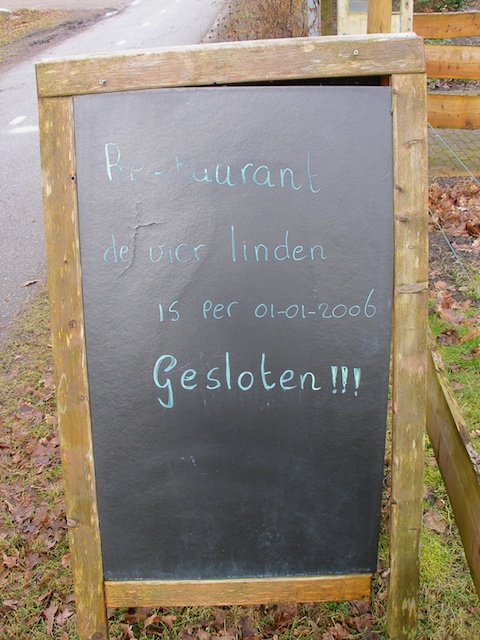 Restaurant
de vier linden
is per 01-01-2006
Gesloten!!!